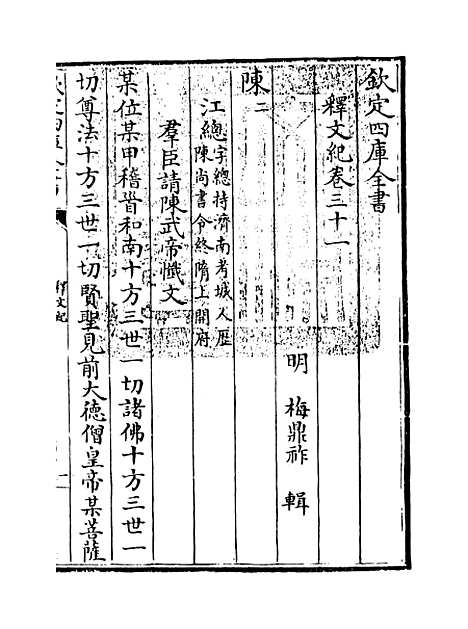 欽定四庫全書
釋文紀卷三十一
明 梅鼎祚 輯
陳二
江總字總持濟南考城人歷
陳尚書令終隋上開府
羣臣請陳武帝懺文
某位某甲稽首和南十方三世一切諸佛十方三世一
切尊法十方三世一切賢聖見前大德僧皇帝某菩薩
釋文紀